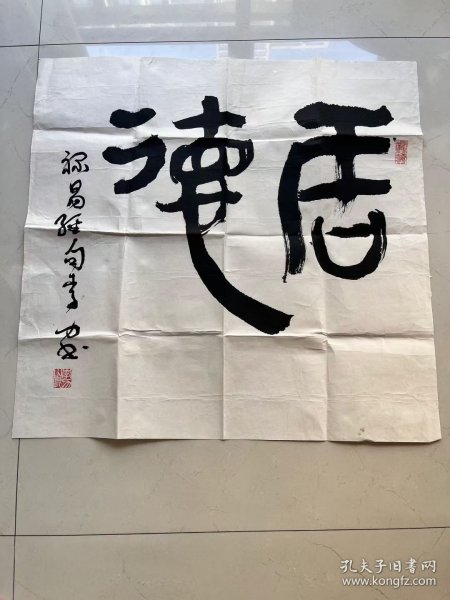 居德
易経句李
孔夫子旧书网
www.kongfz.com